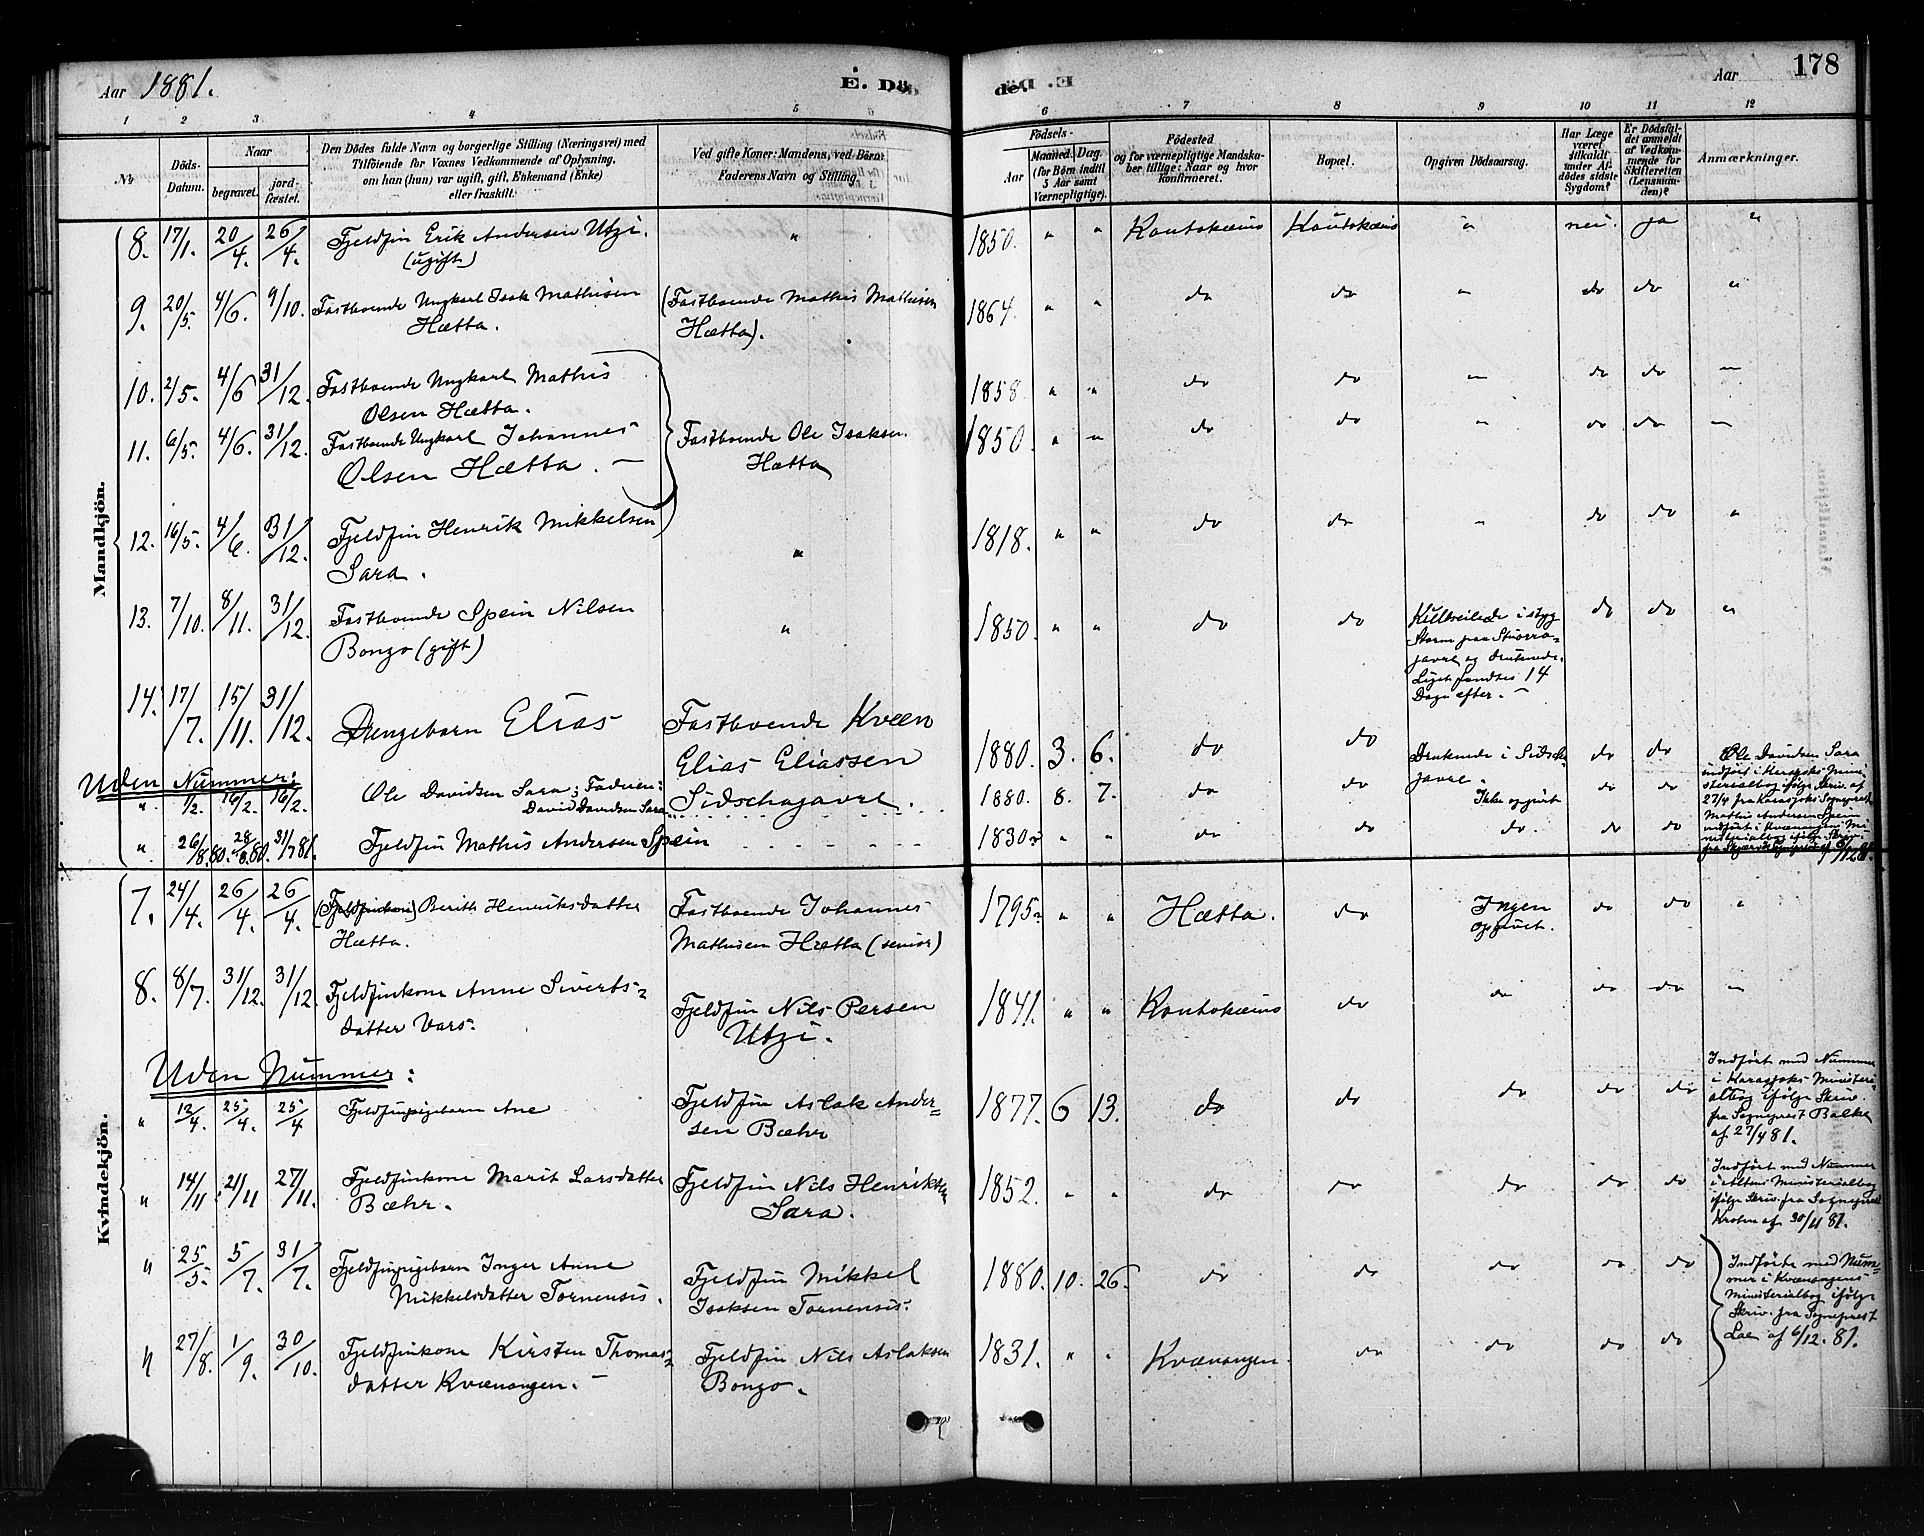 Aar 1881.
E. Döde.
Aar 178
1 2 3 4 5 6 7 8 9 10 11 12
No
Döds-Datum.
Naar
begravet.
jord-fæstet.
Den Dödes fulde Navn og borgerlige Stilling (Næringsvei) med
Tilföiende for Voxnes Vedkommende af Oplysning,
om han (hun) var ugift, gift, Enkemand (Enke)
eller fraskilt.
Ved gifte Koner: Mandens, ved Börn:
Faderens Navn og Stilling.
Födsels-
Aar
Maaned. Dag.
(for Börn indtil
5 Aar samt
Værnepligtige).
Födested
og for værnepligtige Mandska-
ber tillige: Naar og hvor
konfirmeret.
Bopæl.
Opgiven Dödsaarsag.
Har Læge
været
tilkaldt
under Af-
dödes sidste
Sygdom?
Er Dödsfal-
det anmeldt
af Vedkom-
mende for
Skifteretten
(Lensman-
den)?
Anmærkninger.
Mandkjön.
8. 17/1. 20/4. 26/4. Fjeldfin Erik Andersen Utzi. " 1850. " " Koutokeino Koutokeino " nei. ja "
(ugift)
9. 20/5. 4/6. 9/10. Fastboende Ungkarl Isak Mathisen (Fastboende Mathis Mathisen 1864. " " do do " do do "
Hætta. Hætta).
10. 2/5. 4/6 31/12. Fastboende Ungkarl Mathis 1858. " " do do " do do "
Olsen Hætta.
11. 6/5. 4/6. 31/12. Fastboende Ungkarl Johannes Fastboende Ole Isaksen 1850. " " do do " do do "
Olsen Hætta. Hætta
12. 16/5. 4/6. 31/12. Fjeldfin Henrik Mikkelsen " 1818. " " do do " do do "
Sara.
13. 7/10. 8/11. 31/12. Fastboende Spein Nilsen " 1850. " " do do Kuldseilede i styg do do "
Bongo (gift) Storm paa Stuorra-
javre og druknede.
Liget fandtes 14
Dage efter.
14. 17/7. 15/11. 31/12. Drengebarn Elias Fastboende Kvæn
Elias Eliassen 1880. 3. 6. do do Druknede i Sidscha- do do
Sidschajavre. javre.
Uden Nummer:
" 1/2. 16/2. 16/2. Ole Davidsen Sara; Faderen: 1880. 8. 7. do do Ikke opgivet do do Ole Davidsen Sara
David Davidsen Sara indført i Karasjoks Mini-
sterialbog ifølge Skriv. af
27/4 fra Karasjoks Sogneprest
" 26/8.80. 28/8.80. 31/7 81. Fjeldfin Mathis Andersen Spein 1830 " " do do do. do do Mathis Andersen Spein
indført i Kvænangen Mi-
nisterialbog ifølge Skriv.
Kvindekjön.
7. 24/4. 26/4. 26/4. (Fjeldfinkone) Berith Henriksdatter Fastboende Johannes 1795. " " Hætta. do Ingen do do "
Hætta. Mathisen Hætta (senior) opgivet.
8. 8/7. 31/12. 31/12. Fjeldfinkone Anne Siverts- Fjeldfin Nils Persen 1841. " " Koutokeino do do do do "
datter Vars. Utzi.
Uden Nummer:
" 12/4. 25/4. 25/4 Fjeldfinpigebarn Ane Fjeldfin Aslak Ander- 1877. 6 13. do do do do do Indført med Nummer
sen Bæhr i Karasjoks Ministeri-
albog ifølge Skriv.
fra Sogneprest Balke
af 27/4 81.
" 14/11 21/11 27/11. Fjeldfinkone Marit Larsdatter Fjeldfin Nils Henriksen 1852. " " do do do do do Indført med Nummer
Bæhr. Sara. i Altens Ministerialbog
ifølge Skriv. fra Sogneprest
af 30/11 81.
" 25/5. 5/7. 31/7. Fjeldfinpigebarn Inger Anne Fjeldfin Mikkel 1880. 10. 26. do do do do do Indførte med Num-
Mikkelsdatter Tornensis. Isaksen Tornensis. mer i Kvænangens
Ministerialbog ifølge
Skriv. fra Sogneprest
" 27/8. 1/9. 30/10. Fjeldfinkone Kirsten Thomas- Fjeldfin Nils Aslaksen 1831. " " Kvænangen. do do do do af 6/12. 81.
datter Kvænangen. Bongo.